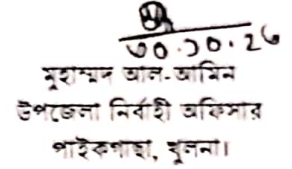 ৩০.১০.২৬
মুহাম্মদ আল-আমিন
উপজেলা নির্বাহী অফিসার
পাইকগাছা, খুলনা।